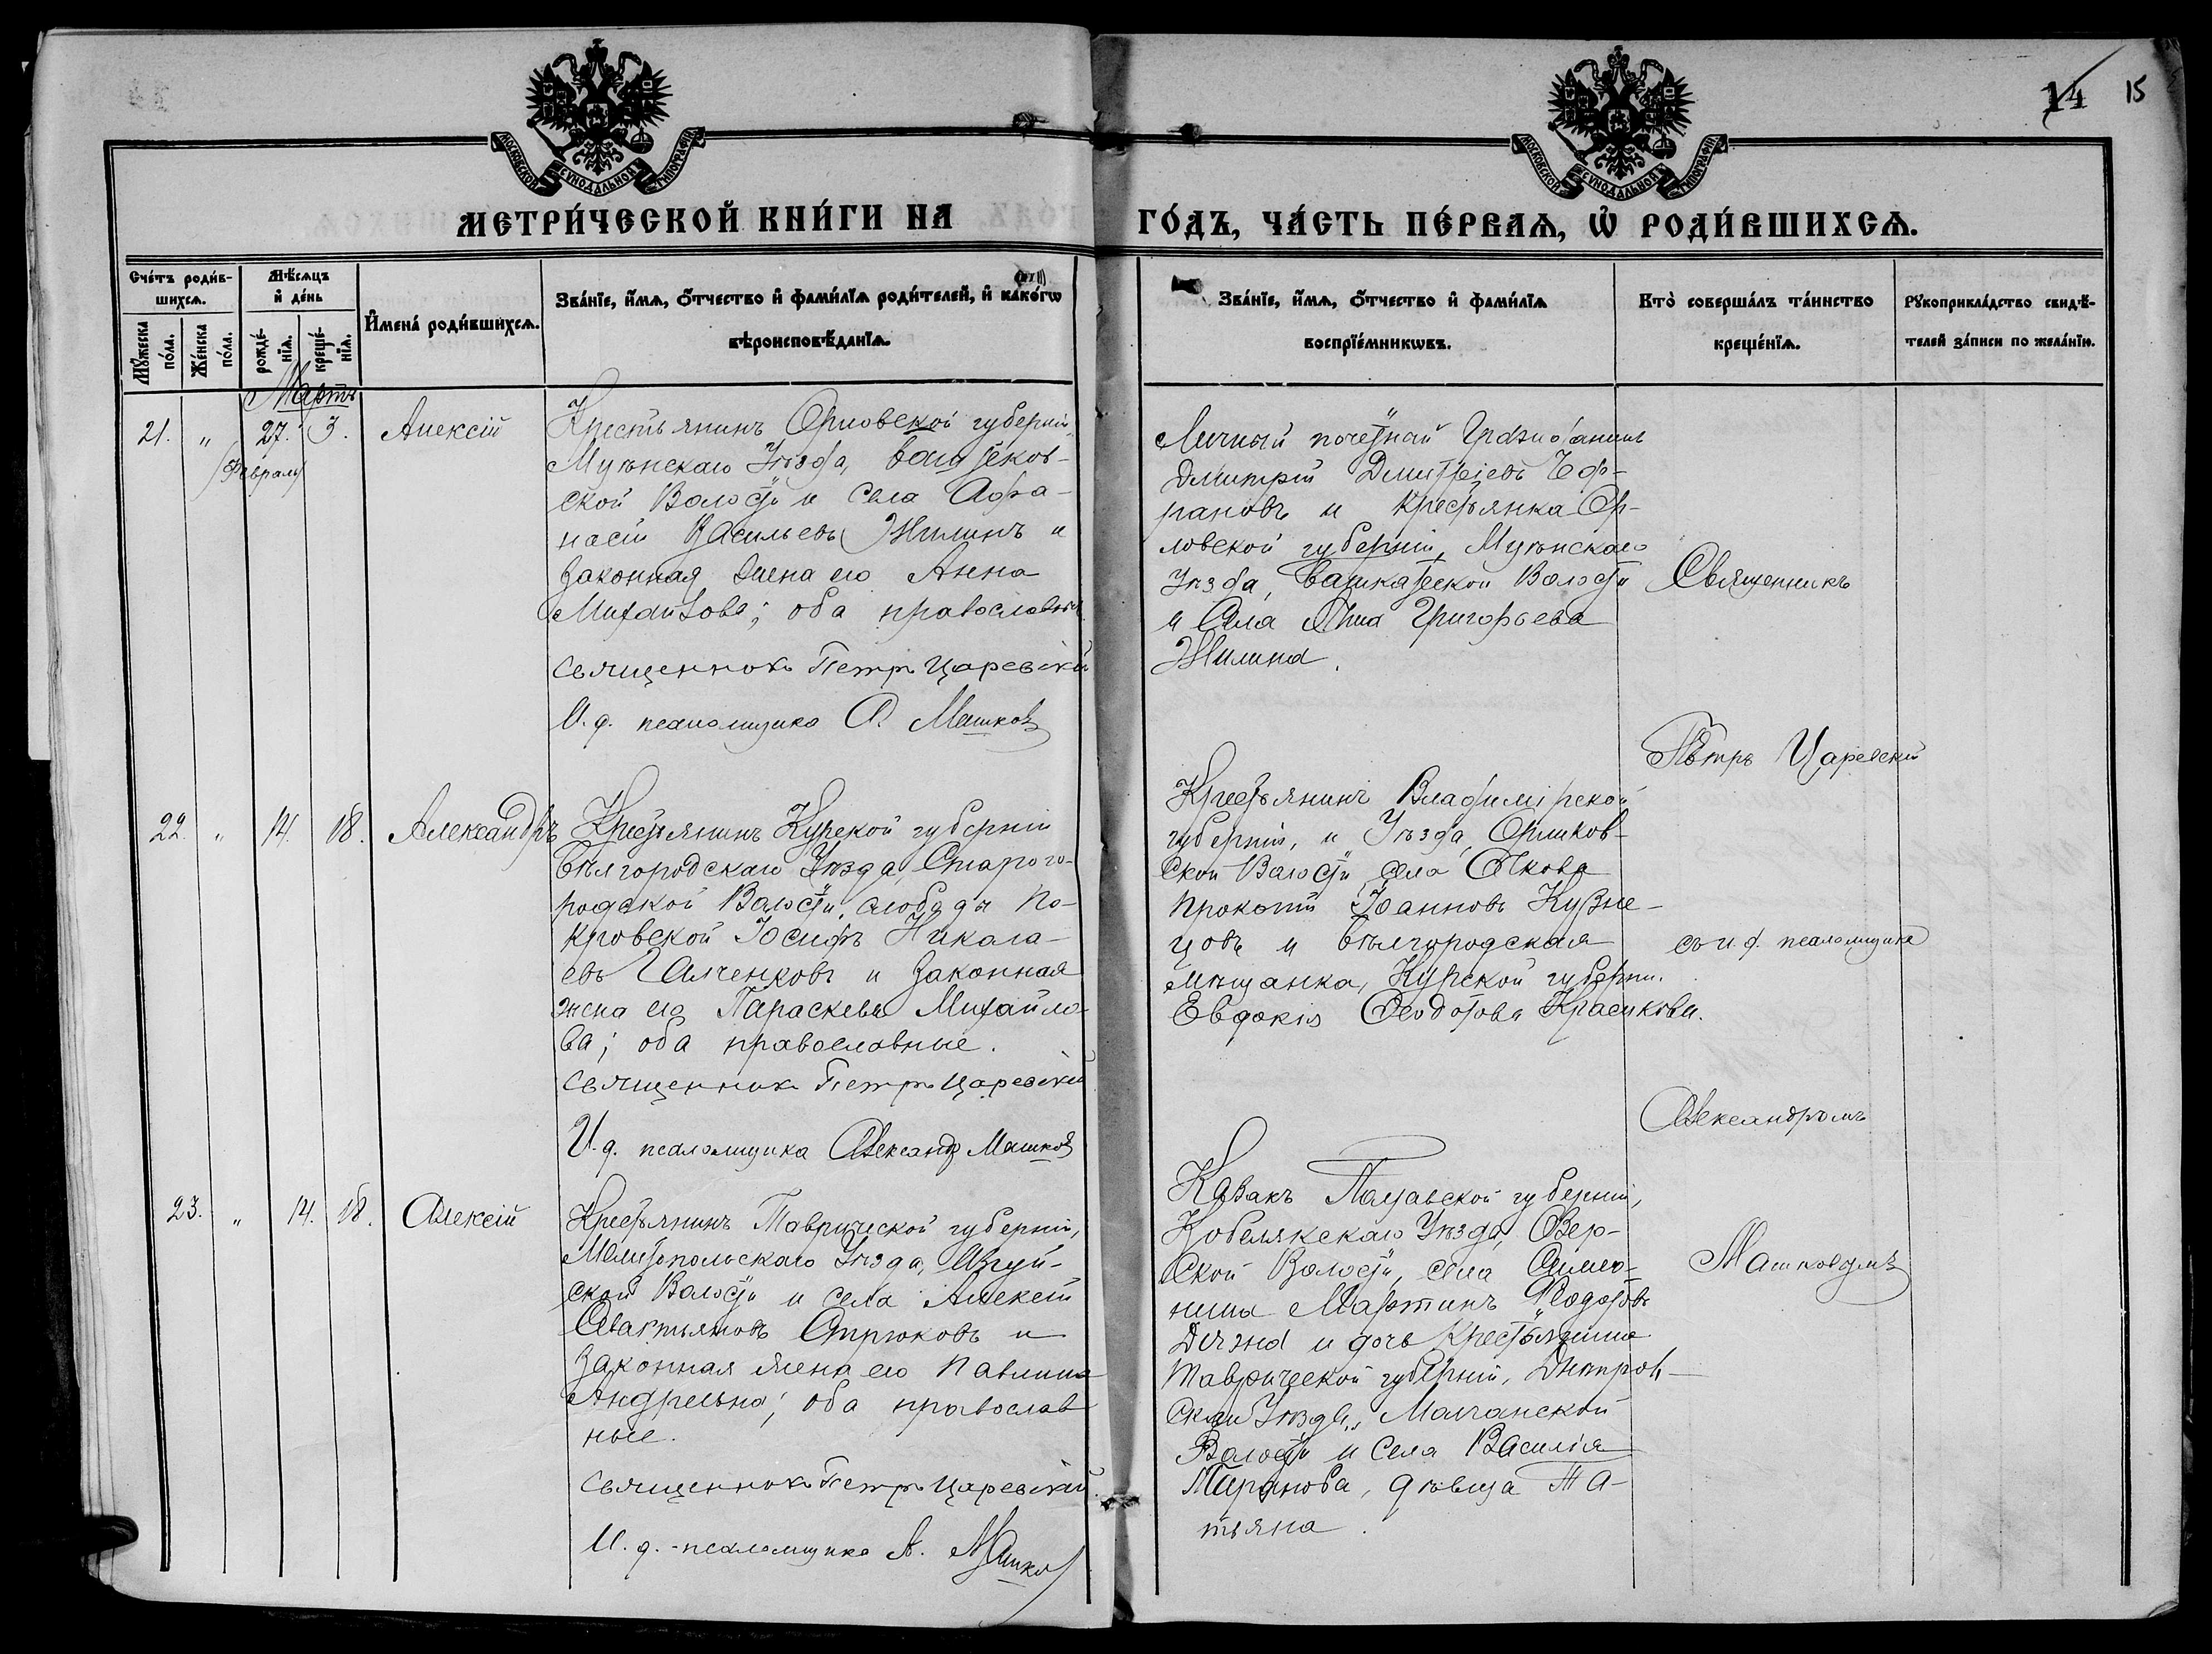 14 15
МОСКОВСКОЙ СѴНОДАЛЬНОЙ ТИПОГРАФІИ
МОСКОВСКОЙ СѴНОДАЛЬНОЙ ТИПОГРАФІИ
МЕТРИ́ЧЕСКОЙ КНИ́ГИ НА ГО́ДЪ, ЧА́СТЬ ПЕ́РВАѦ, Ѡ РОДИ́ВШИХСѦ.
Сче́тъ роди́в-
шихсѧ.
Мꙋ́жеска по́ла.
Же́нска по́ла.
Мѣ́сѧцъ
и де́нь
рожде́-
нїѧ.
креще́-
нїѧ.
Имена́ роди́вшихсѧ.
Зва́нїе, и́мѧ, ѻ́тчество и фами́лїѧ роди́телей, и како́гѡ
вѣроисповѣ́данїѧ.
Зва́нїе, и́мѧ, ѻ́тчество и фами́лїѧ
воспрїе́мникѡвъ.
Кто̀ соверша́лъ та́инство
креще́нїѧ.
Рꙋкоприкла́дство свидѣ́-
телей за́писи по жела́нїю.
Мартъ
21. " 27. 3. Алексій
/Февраль/
Крестьянинъ Орловской губерніи,
Уѣзда,
ской Волости и Села Афа-
насій Васильевъ Жилинъ и
законная жена его Анна
Михайлова; оба православные
священникъ Петръ Царевскій
И. д. псаломщика А. Машковъ
Личный почетный Гражданинъ
Дмитрій Дмитріевъ
и крестьянка Ор-
ловской губерніи,
Уѣзда, Волости
и Села Анна Григорьева
Жилина.
Священникъ
Петръ Царевскій
22. " 14. 18. Александръ
Крестьянинъ Курской губерніи
Бѣлгородскаго Уѣзда, Старого-
родской Волости, слободы По-
кровской Іосифъ Никола-
евъ Галченковъ и законная
жена его Параскева Михайло-
ва; оба православные.
священникъ Петръ Царевскій
И. д. псаломщика Александръ Машковъ
Крестьянинъ Владимірской
губерніи, и Уѣзда,
ской Волости, села
Прокопій Іоанновъ Кузне-
цовъ и Бѣлгородская
мѣщанка, Курской губерніи.
Евдокія Ѳеодотова Красикова.
съ и. д. псаломщика
Александромъ
23. " 14. 18. Алексій
Крестьянинъ Таврической губерніи,
Мелитопольскаго Уѣзда,
ской Волости и села Алексій
Стрюковъ и
законная жена его Павлина
Андреевна; оба православ-
ные.
священникъ Петръ Царевскій.
И. д. псаломщика А. Машковъ
Казакъ Полтавской губерніи,
Кобелякскаго Уѣзда, Озер-
ской Волости, села
Мартинъ Ѳеодотовъ
и дочь Крестьянина
Таврической губерніи, Днѣпров-
скаго Уѣзда,
Волости и Села Василія
Таранова, дѣвица Та-
тьяна.
Машковымъ